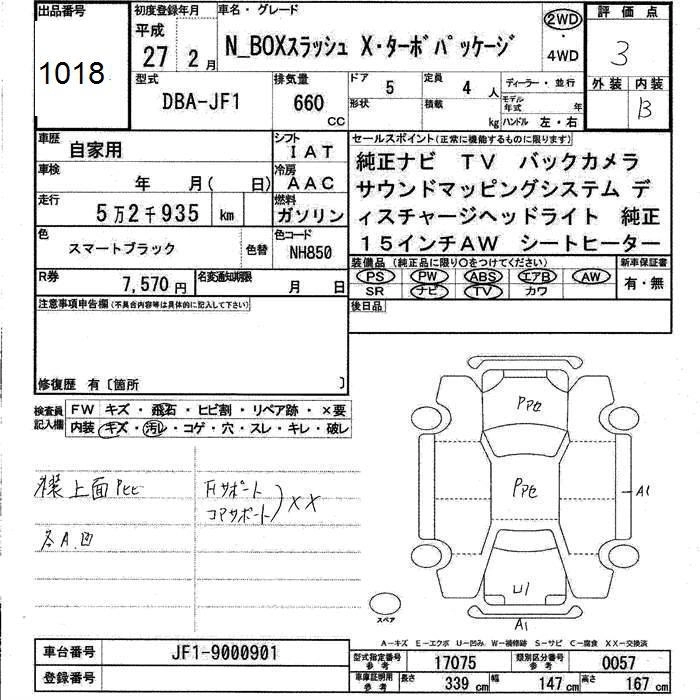 出品番号 初度登録年月 車名・グレード 評価点
1018 平成 27 2月 N_BOXスラッシュ X・ターボパッケージ 2WD ・ 4WD 3
型式 排気量 ドア 5 定員 4 人 ディーラー・並行 外装 内装
DBA-JF1 660 CC 形状 積載 kg モデル年式 年 B
ハンドル 左・右
車歴 自家用 シフト IAT セールスポイント(正常に機能するものに限ります)
車検 年 月( 日) 冷房 AAC 純正ナビ TV バックカメラ
走行 5万2千935 km 燃料 ガソリン サウンドマッピングシステム デ
ィスチャージヘッドライト 純正
色 スマートブラック 色替 色コード NH850 15インチAW シートヒーター
R券 7,570円 名変通知期限 月 日 装備品 (純正品に限り○をつけてください) 新車保証書
PS PW ABS エアB AW 有・無
SR ナビ TV カワ
注意事項申告欄(不具合内容等は具体的に記入して下さい) 後日品
修復歴 有〔箇所 〕
検査員記入欄 FW キズ・飛石・ヒビ割・リペア跡・×要
内装 キズ・汚レ・コゲ・穴・スレ・キレ・破レ
上面 Fサポート
コアサポート XX
各A.凹
A1
U1
A1
スペア
A-キズ E-エクボ U-凹み W-補修跡 S-サビ C-腐食 XX-交換済
車台番号 JF1-9000901 型式指定番号 参考 17075 類別区分番号 参考 0057
登録番号 車庫証明用 参考 長さ 339cm 幅 147cm 高さ 167cm